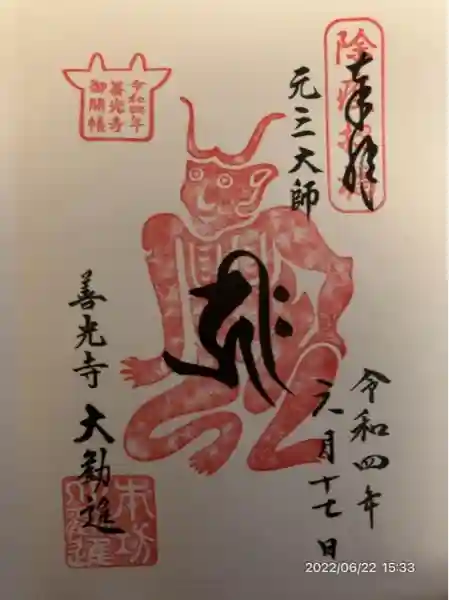 奉拝
除疫招福
元三大師
令和四年
六月十七日
令和四年
善光寺
御開帳
善光寺 大勧進
2022/06/22 15:33